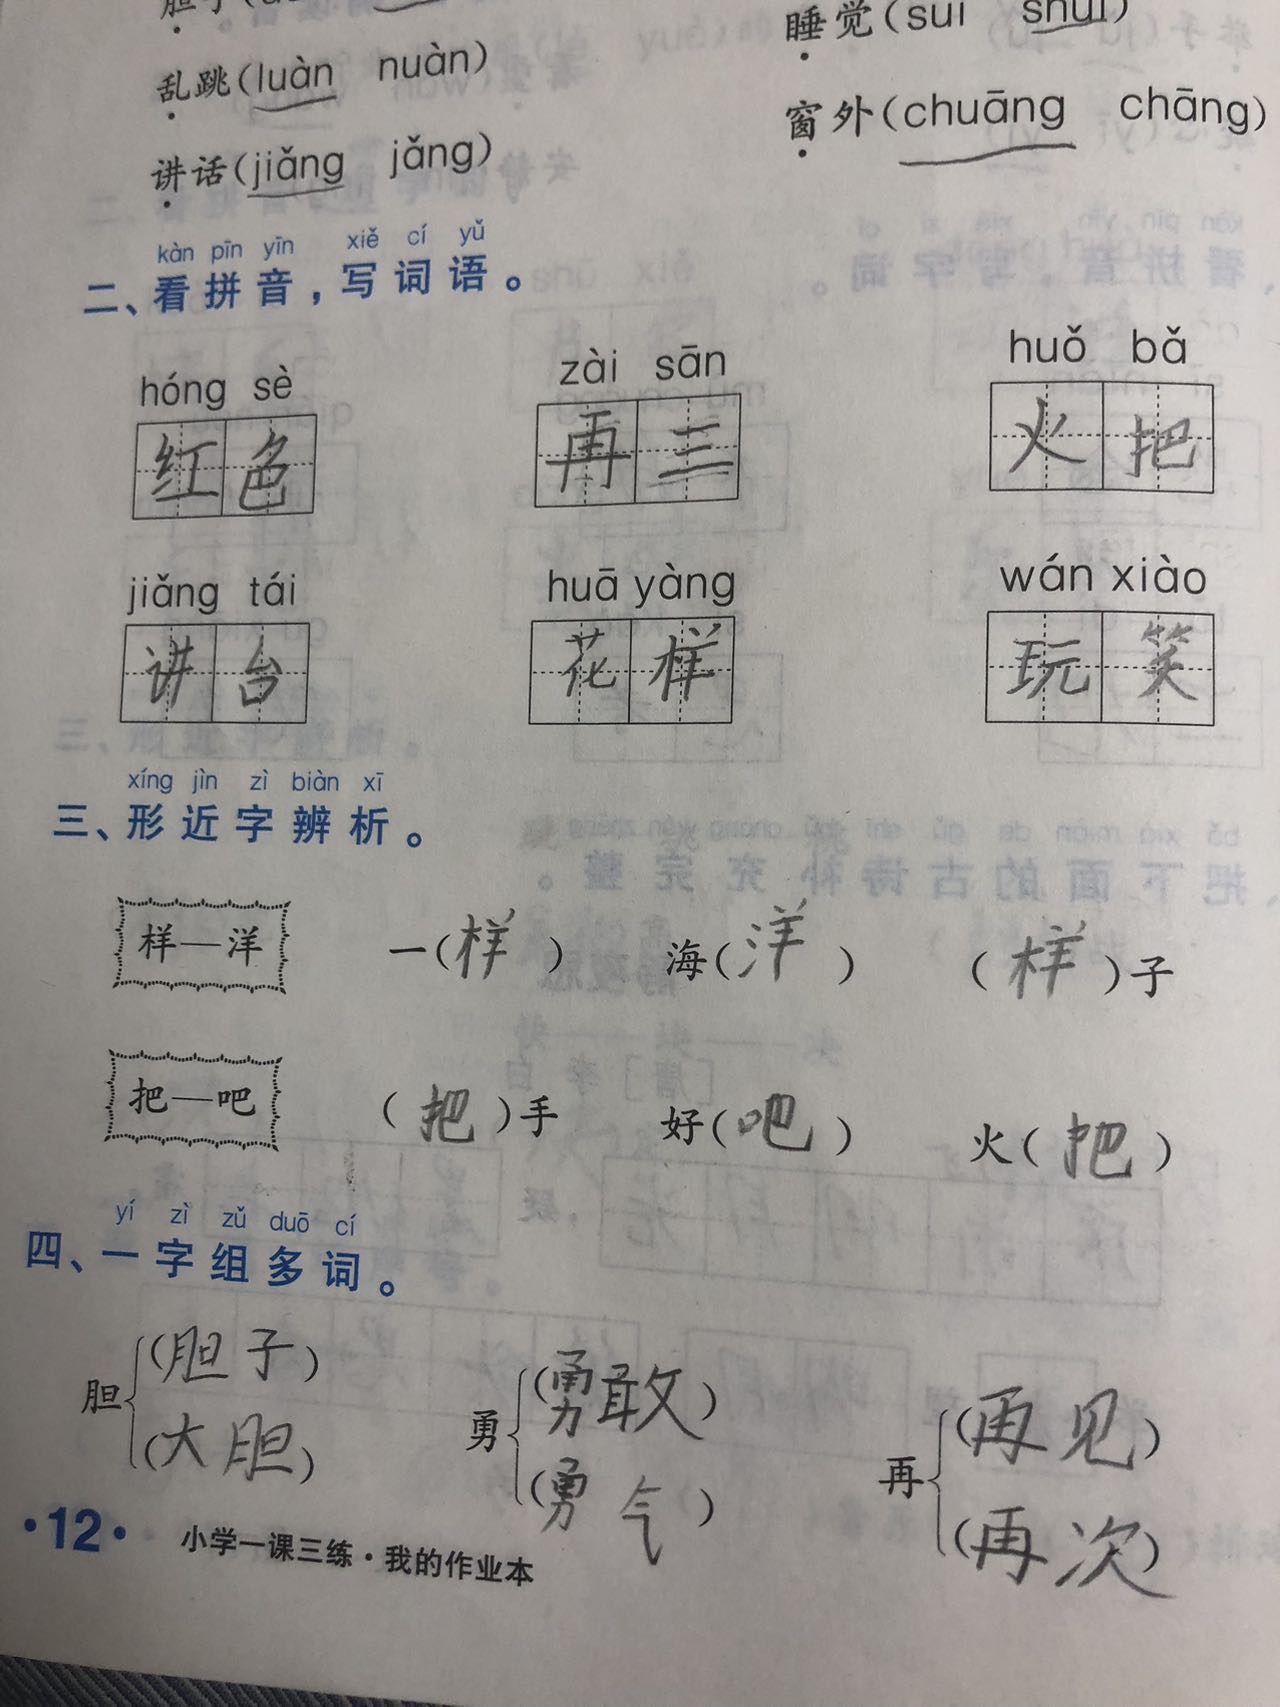 胆子(
睡觉(suì shuì)
乱跳(luàn nuàn)
窗外(chuāng chāng)
讲话(jiǎng jǎng)
kàn pīn yīn xiě cí yǔ
二、看拼音，写词语。
hóng sè zài sān huǒ bǎ
红色 再三 火把
jiǎng tái huā yàng wán xiào
讲台 花样 玩笑
xíng jìn zì biàn xī
三、形近字辨析。
样—洋 一(样) 海(洋) (样)子
把—吧 (把)手 好(吧) 火(把)
yí zì zǔ duō cí
四、一字组多词。
胆 (胆子) (大胆)
勇 (勇敢) (勇气)
再 (再见) (再次)
·12· 小学一课三练·我的作业本